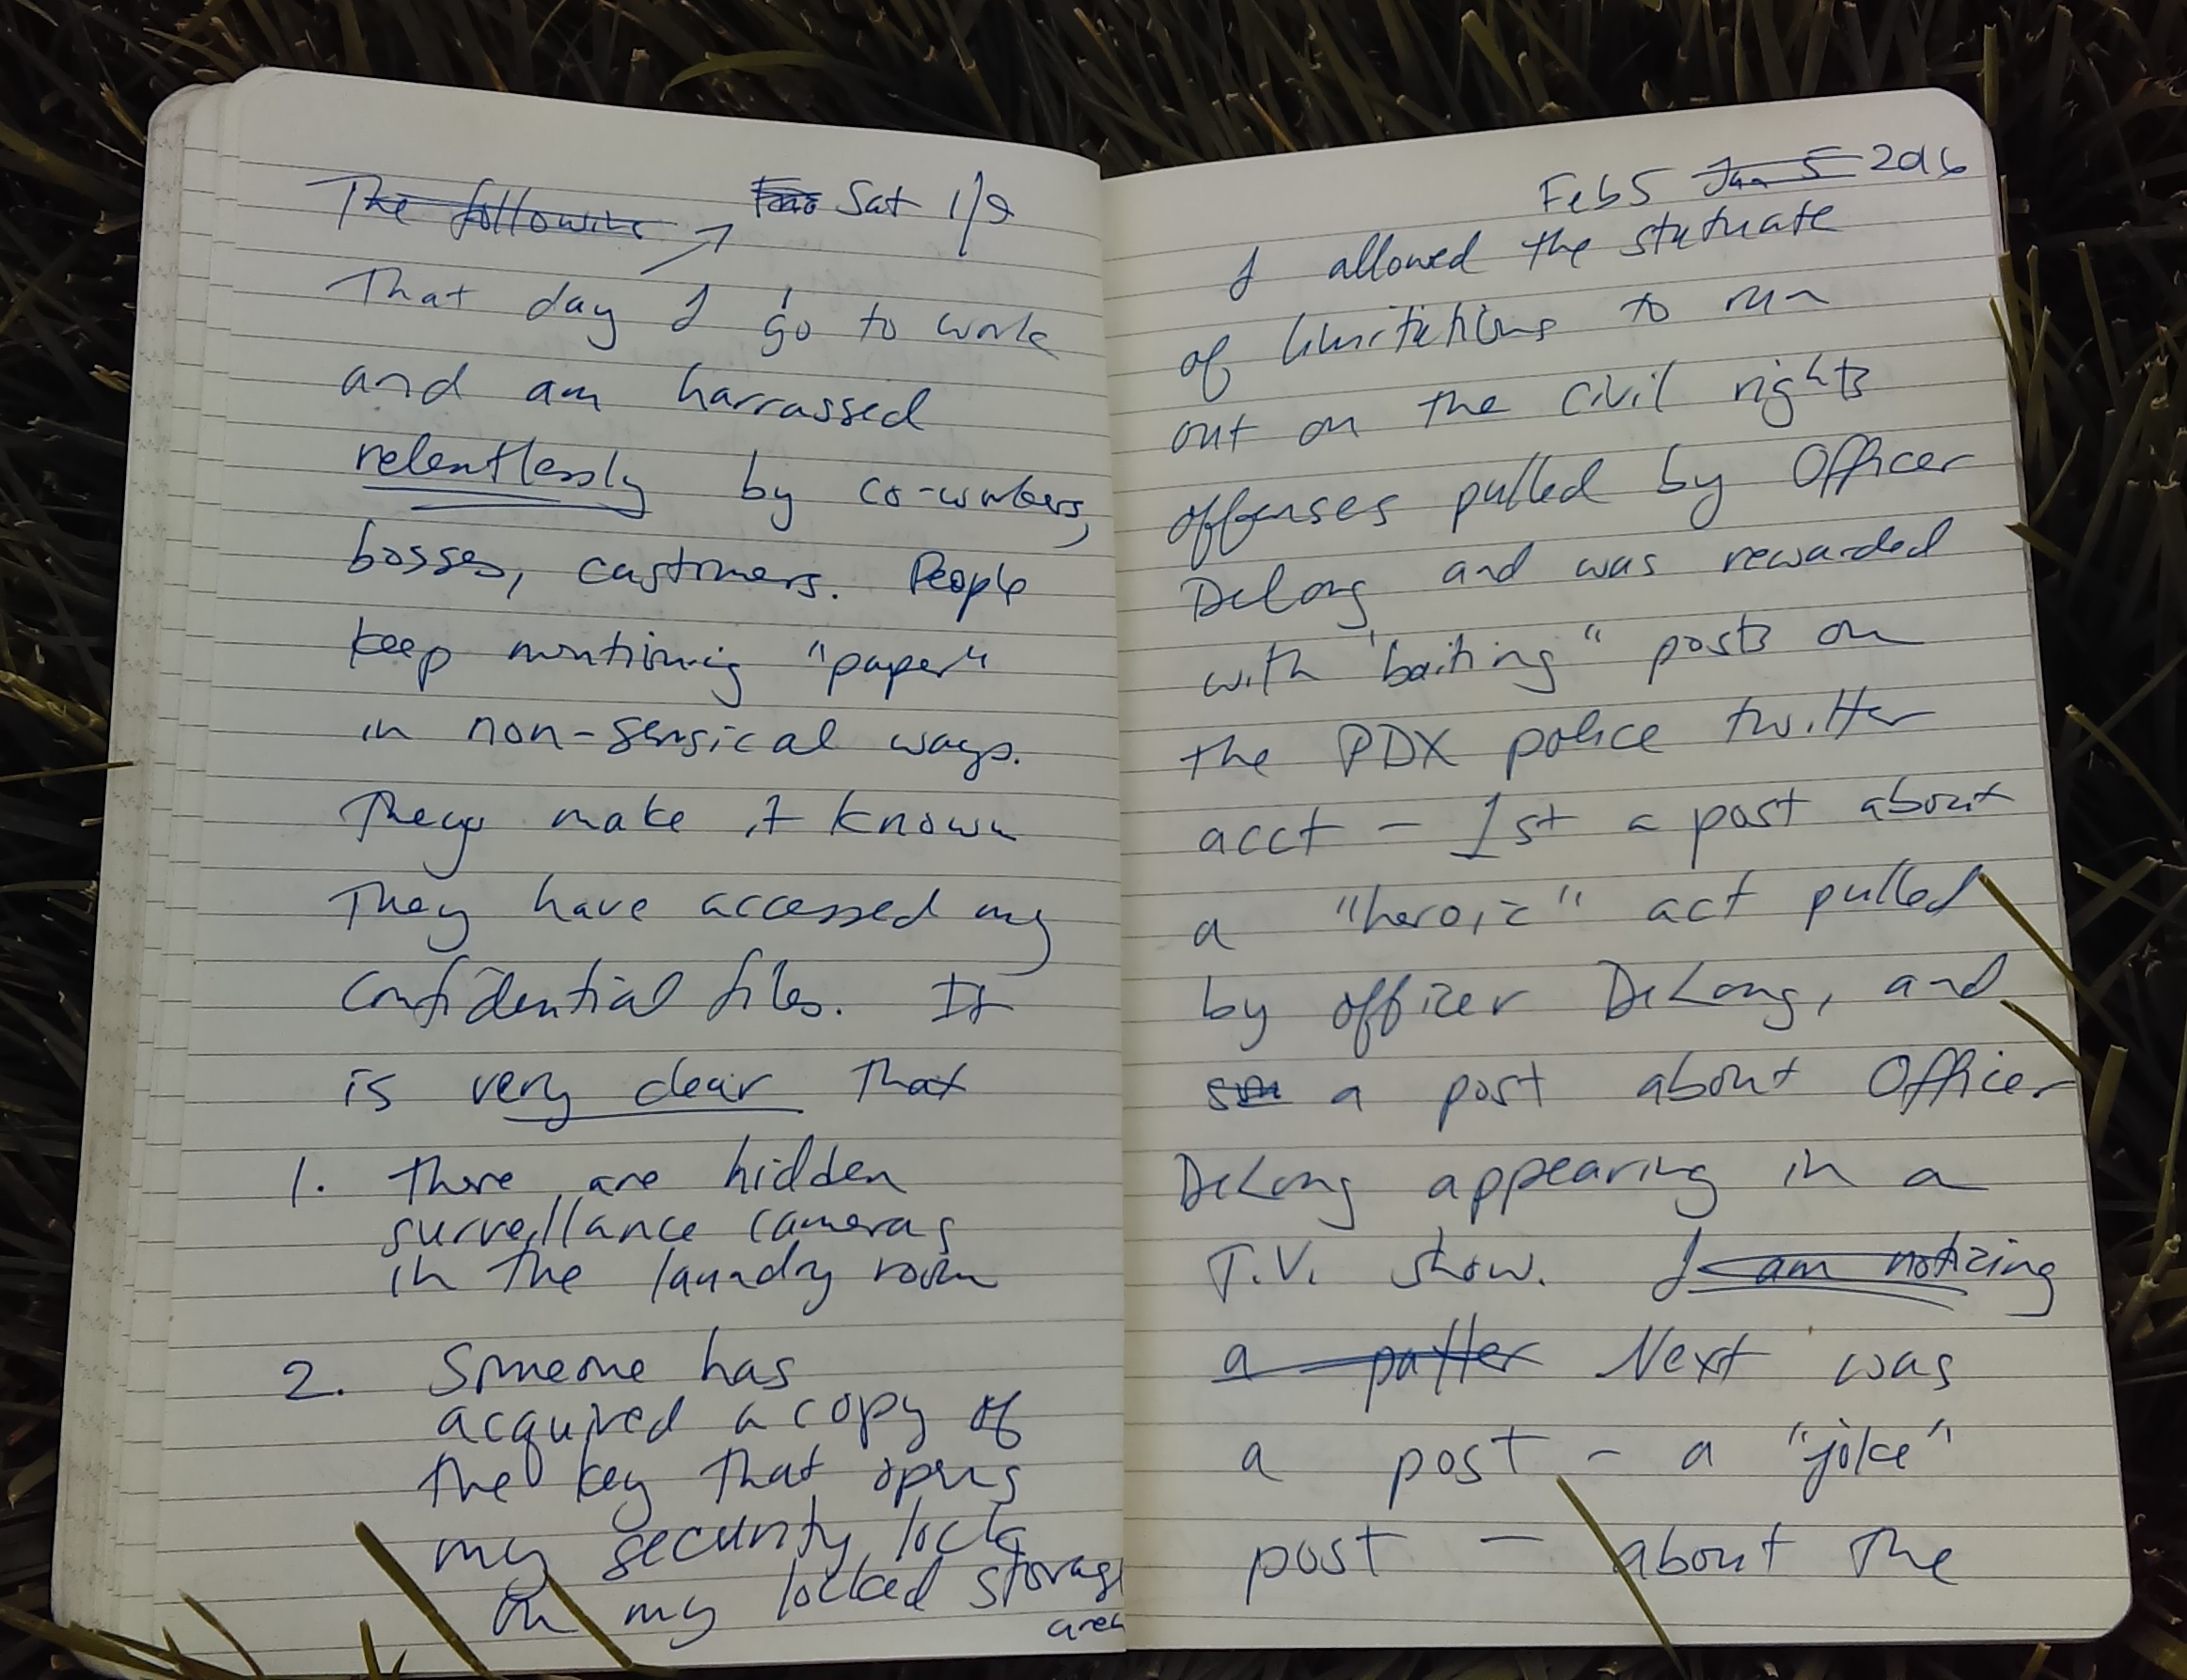 The following Sat 1/9
That day I go to work
and am harrassed
relentlessly by co-workers,
bosses, customers. People
keep mentioning "paper"
in non-sensical ways.
They make it known
They have accessed my
confidential files. It
is very clear that
1. there are hidden
surveillance cameras
in the laundry room
2. Someone has
acquired a copy of
the key that opens
my security lock
on my locked storage
area
Feb 5 Jan 5 2016
I allowed the statuate
of limitations to run
out on the civil rights
offenses pulled by Officer
DeLong and was rewarded
with "baiting" posts on
the PDX police twitter
acct - 1st a post about
a "heroic" act pulled
by officer DeLong, and
a post about Officer
DeLong appearing in a
T.V. show. I am noticing
a patter Next was
a post - a "joke"
post - about the